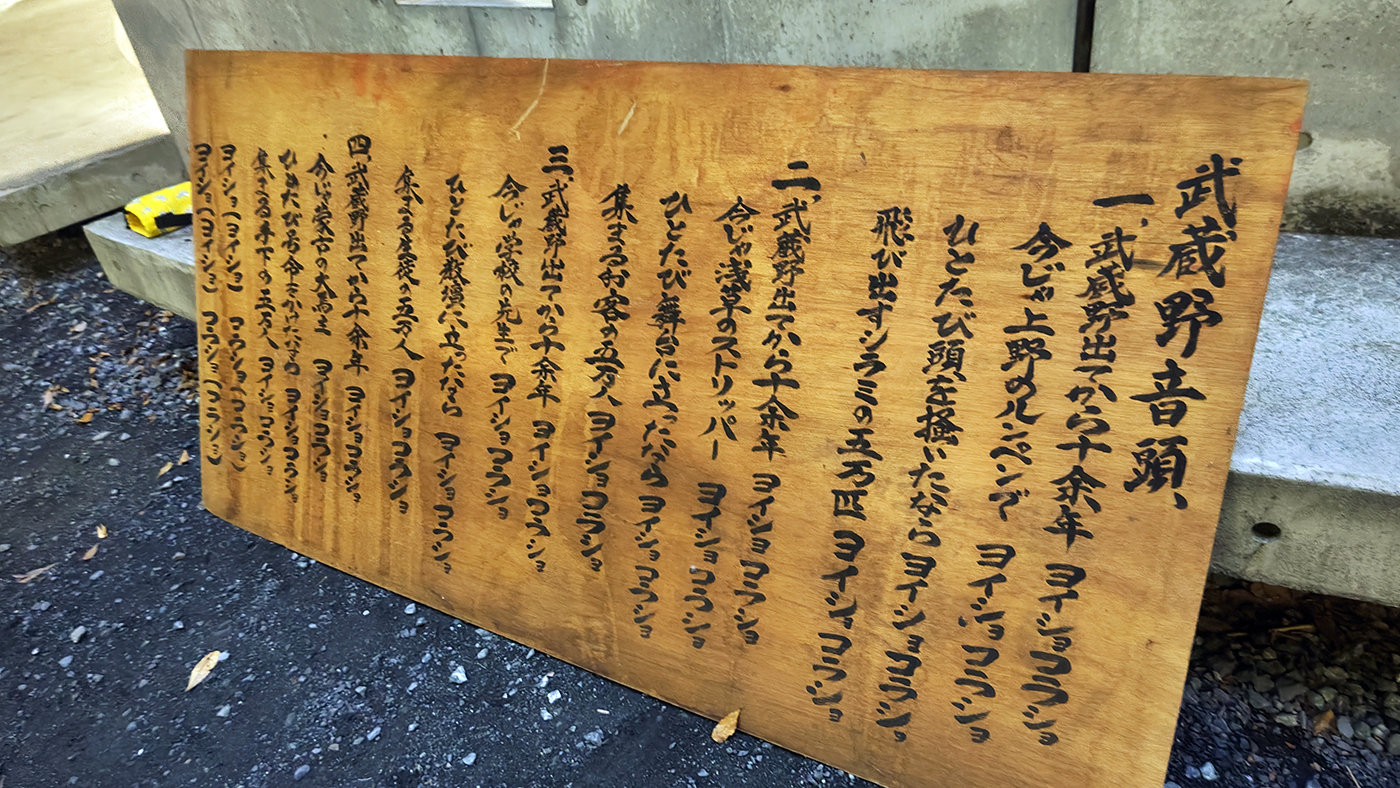 武蔵野音頭、
一、武蔵野出てから十余年 ヨイショコラショ
今じゃ上野のルンペンで ヨイショコラショ
ひとたび頭を掻いたなら ヨイショコラショ
飛び出すシラミの五万匹 ヨイショコラショ
二、武蔵野出てから十余年 ヨイショコラショ
今じゃ浅草のストリッパー ヨイショコラショ
ひとたび舞台に立ったなら ヨイショコラショ
集まるお客の五万人 ヨイショコラショ
三、武蔵野出てから十余年 ヨイショコラショ
今じゃ学校の先生で ヨイショコラショ
ひとたび教壇に立ったなら ヨイショコラショ
集まる生徒の五万人 ヨイショコラショ
四、武蔵野出てから十余年 ヨイショコラショ
今じゃ蒙古の大馬主 ヨイショコラショ
ひとたび号令をかけたなら ヨイショコラショ
集まる手下の五万人 ヨイショコラショ
ヨイショ(ヨイショ) コラショ(コラショ)
ヨイショ(ヨイショ) コラショ(コラショ)